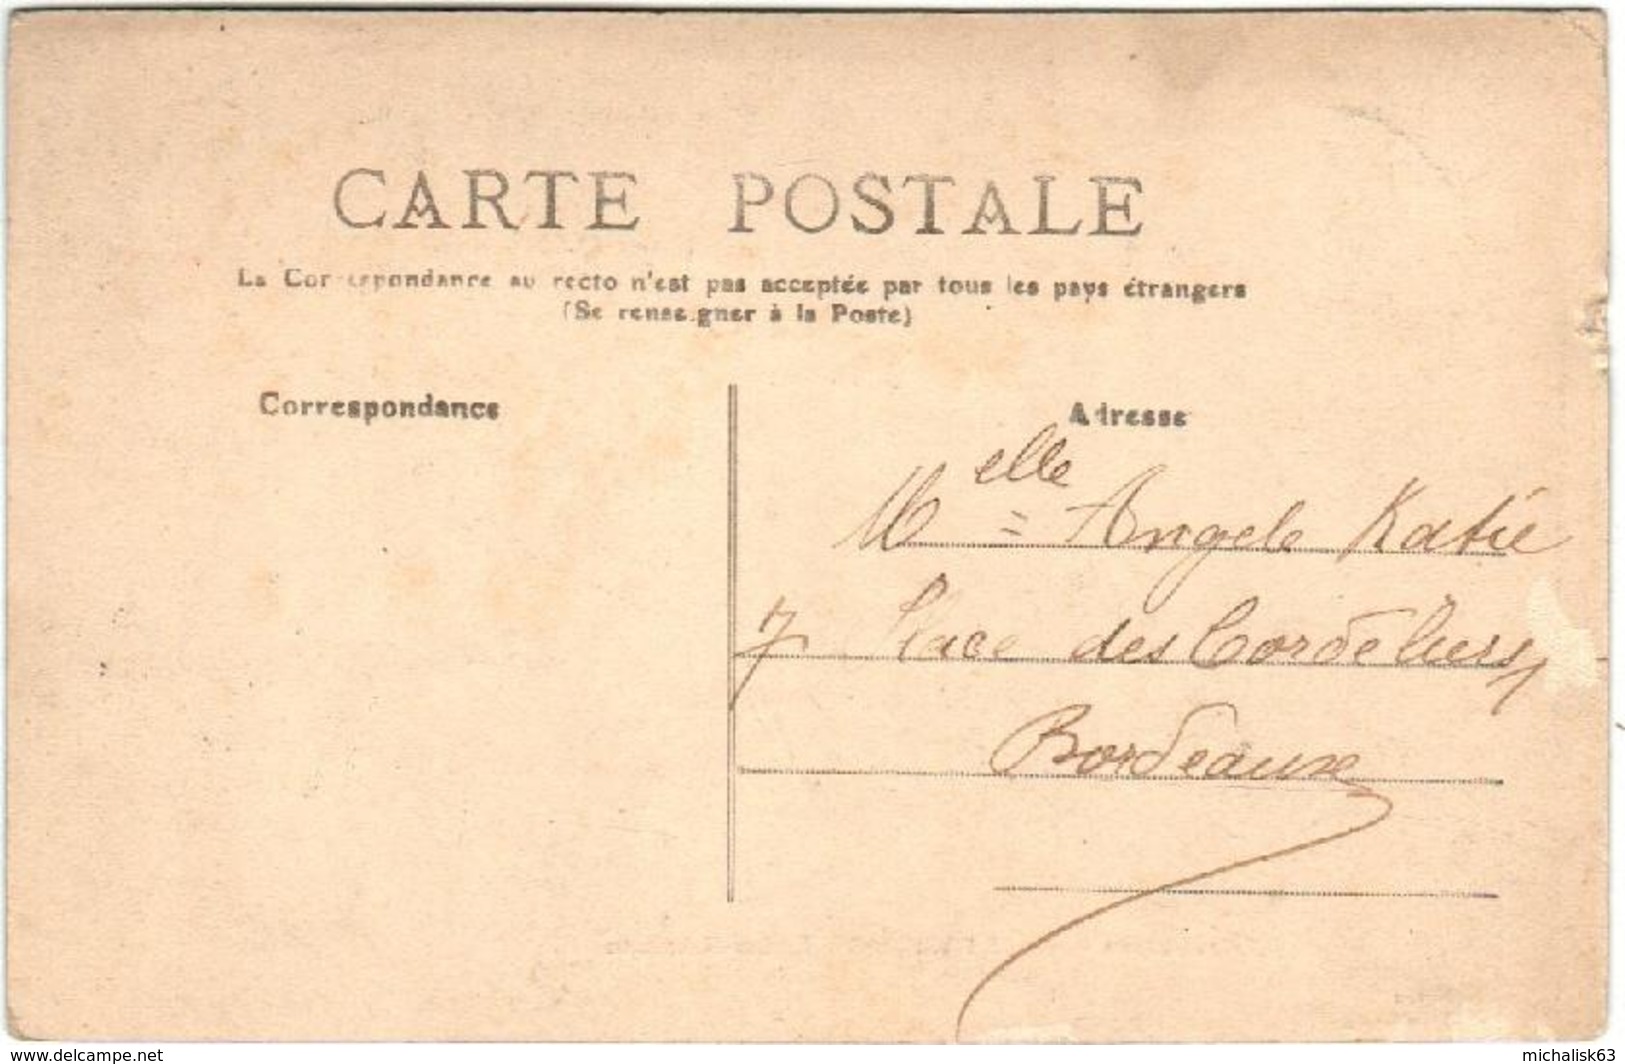 CARTE POSTALE
La Correspondance au recto n'est pas acceptée par tous les pays étrangers
(Se renseigner à la Poste)
Correspondance
Adresse
Melle = Angele Katie
7 Place des Cordeliers,
Bordeaux
www.delcampe.net
michalisk63